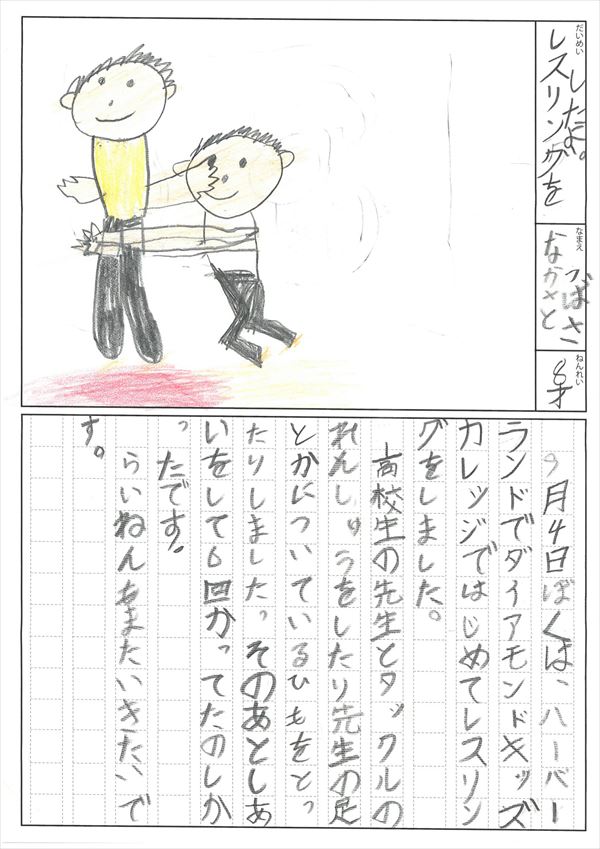 だいめい
レスリングを
したよ。
なまえ
なかさと
つばさ
ねんれい
8才
9月4日ぼくは、ハーバー
ランドでダイアモンドキッズ
カレッジではじめてレスリン
グをしました。
高校生の先生とタックルの
れんしゅうをしたり先生の足
とかについているひもをとっ
たりしました。そのあとしあ
いをして6回かってたのしか
ったです。
らいねんもまたいきたいで
す。